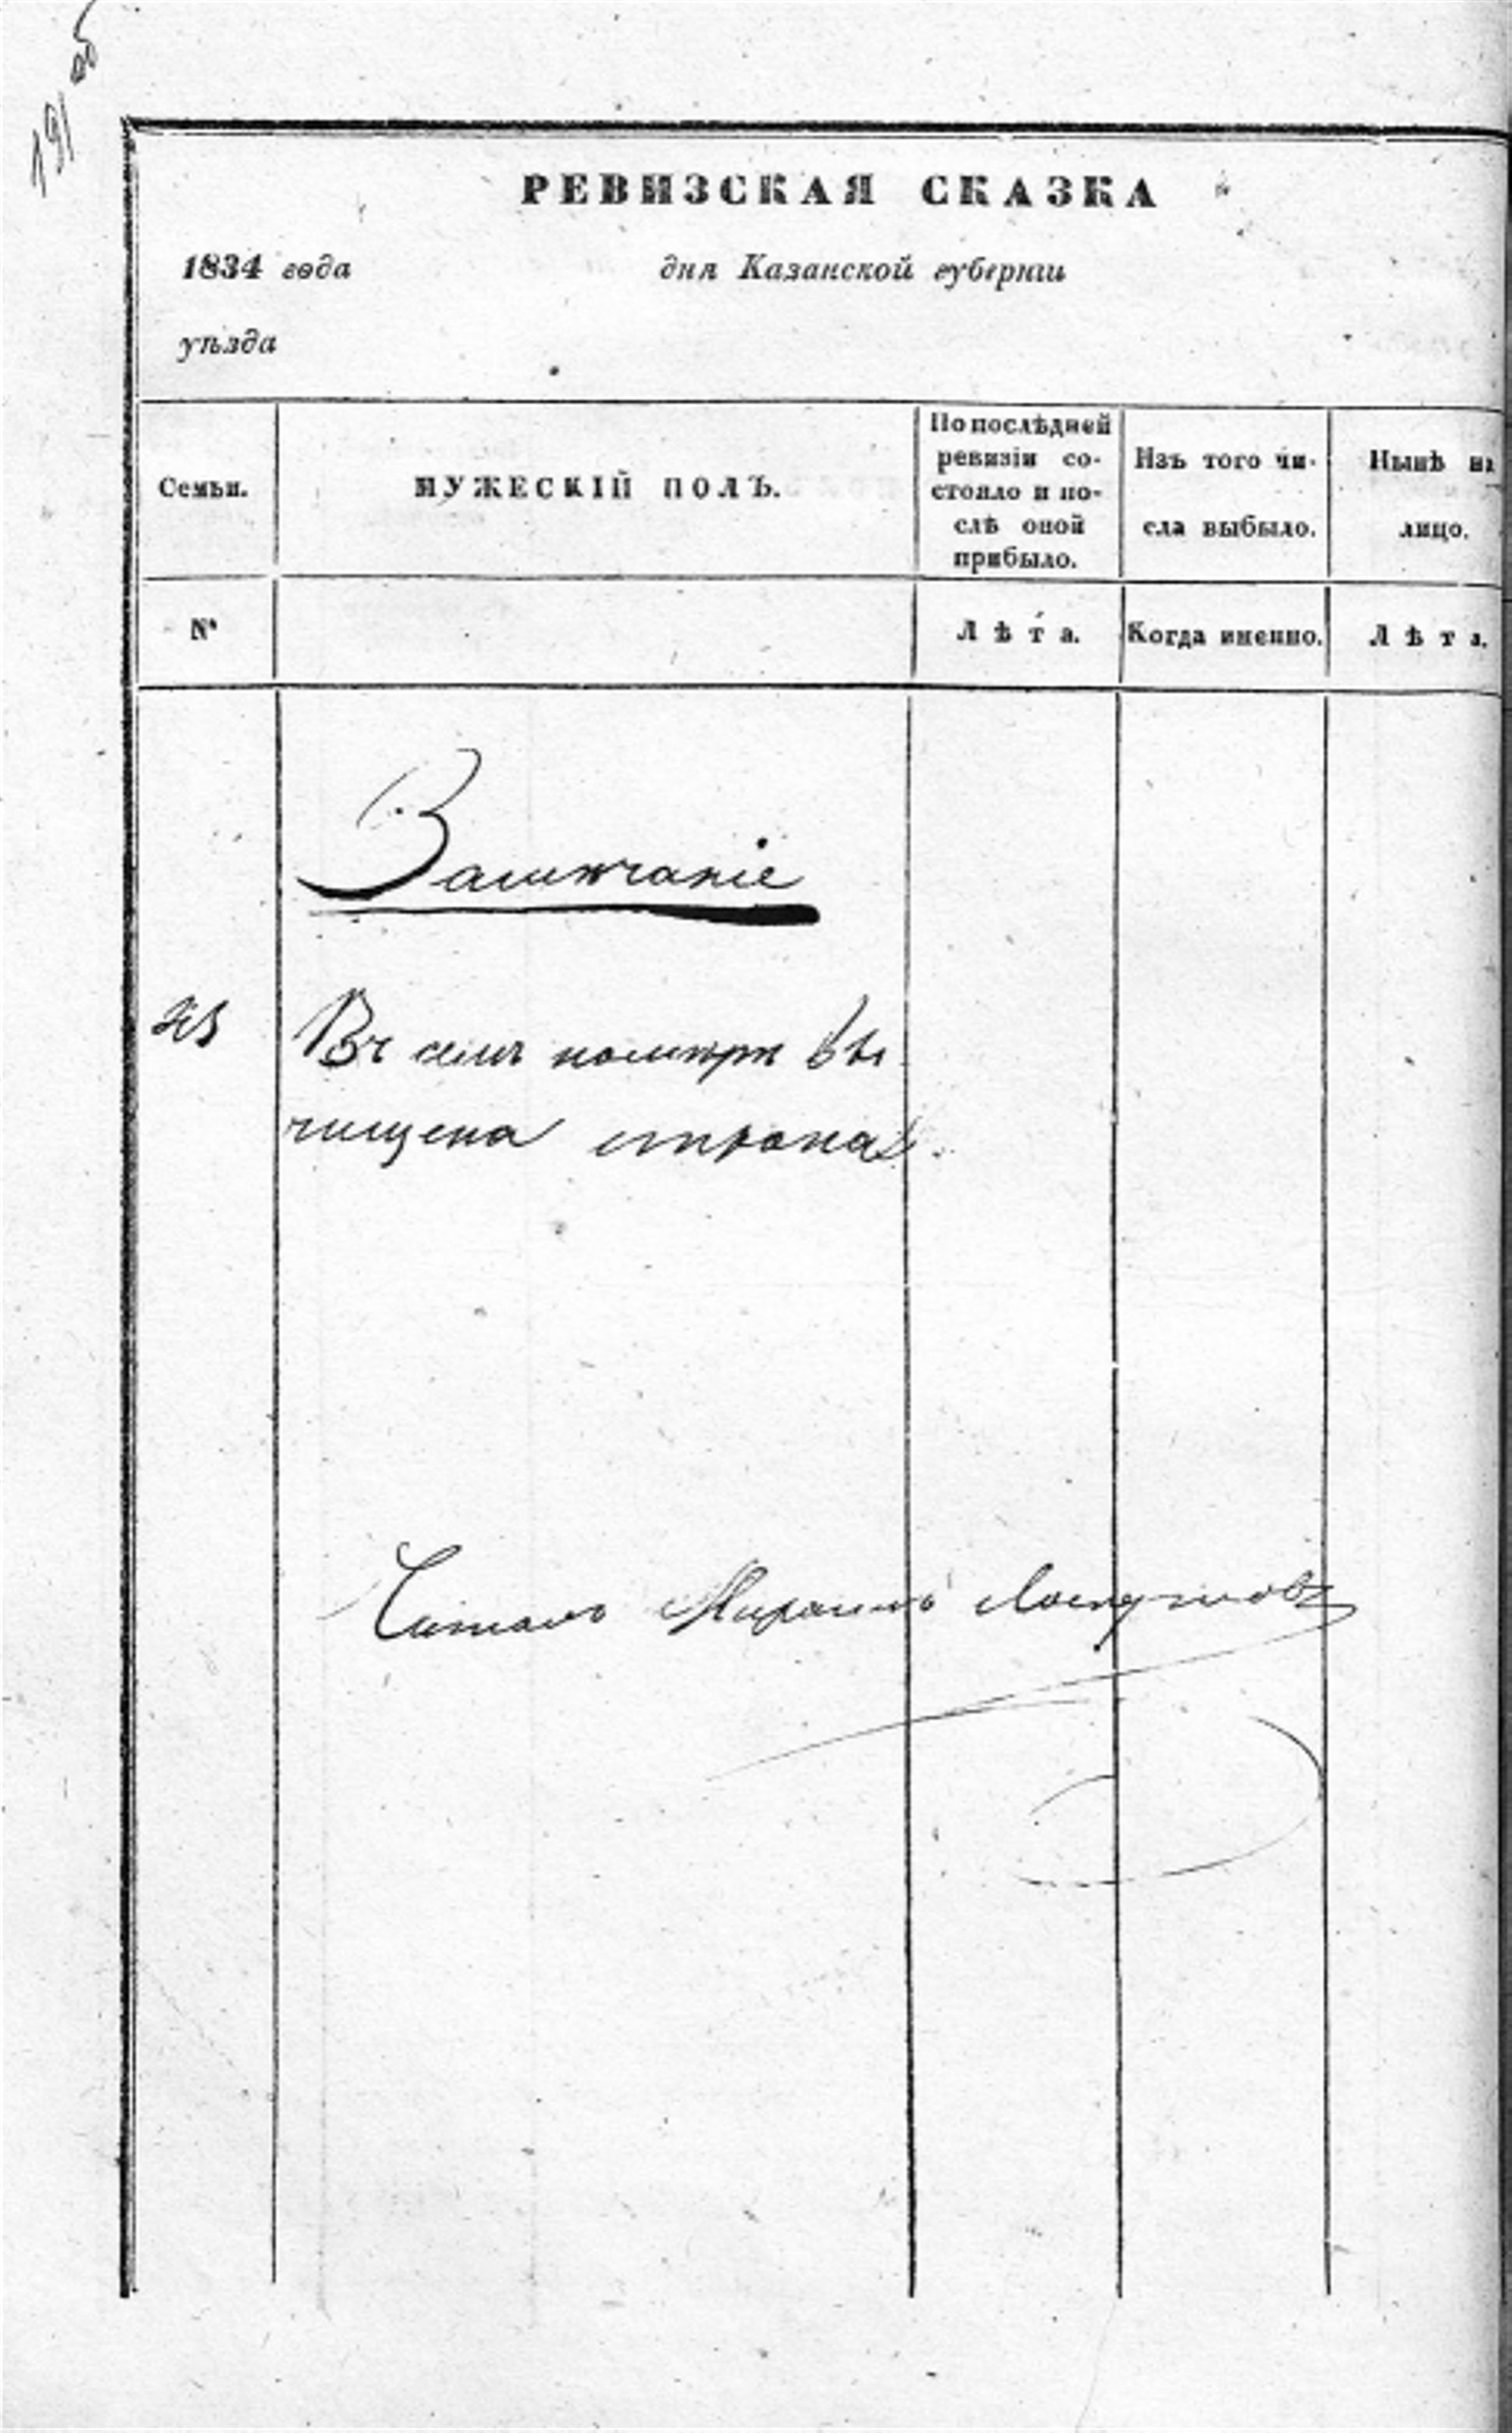 191 об
РЕВИЗСКАЯ СКАЗКА
1834 года дня Казанской губернiи
уѣзда
Семьи.
МУЖЕСКIЙ ПОЛЪ.
По послѣдней
ревизiи со-
стояло и по-
слѣ оной
прибыло.
Изъ того чи-
сла выбыло.
Нынѣ на
лицо.
№
Лѣта.
Когда именно.
Лѣта.
Замѣчанiе
Въ семъ номѣрѣ вы
чищена строка.
Читалъ